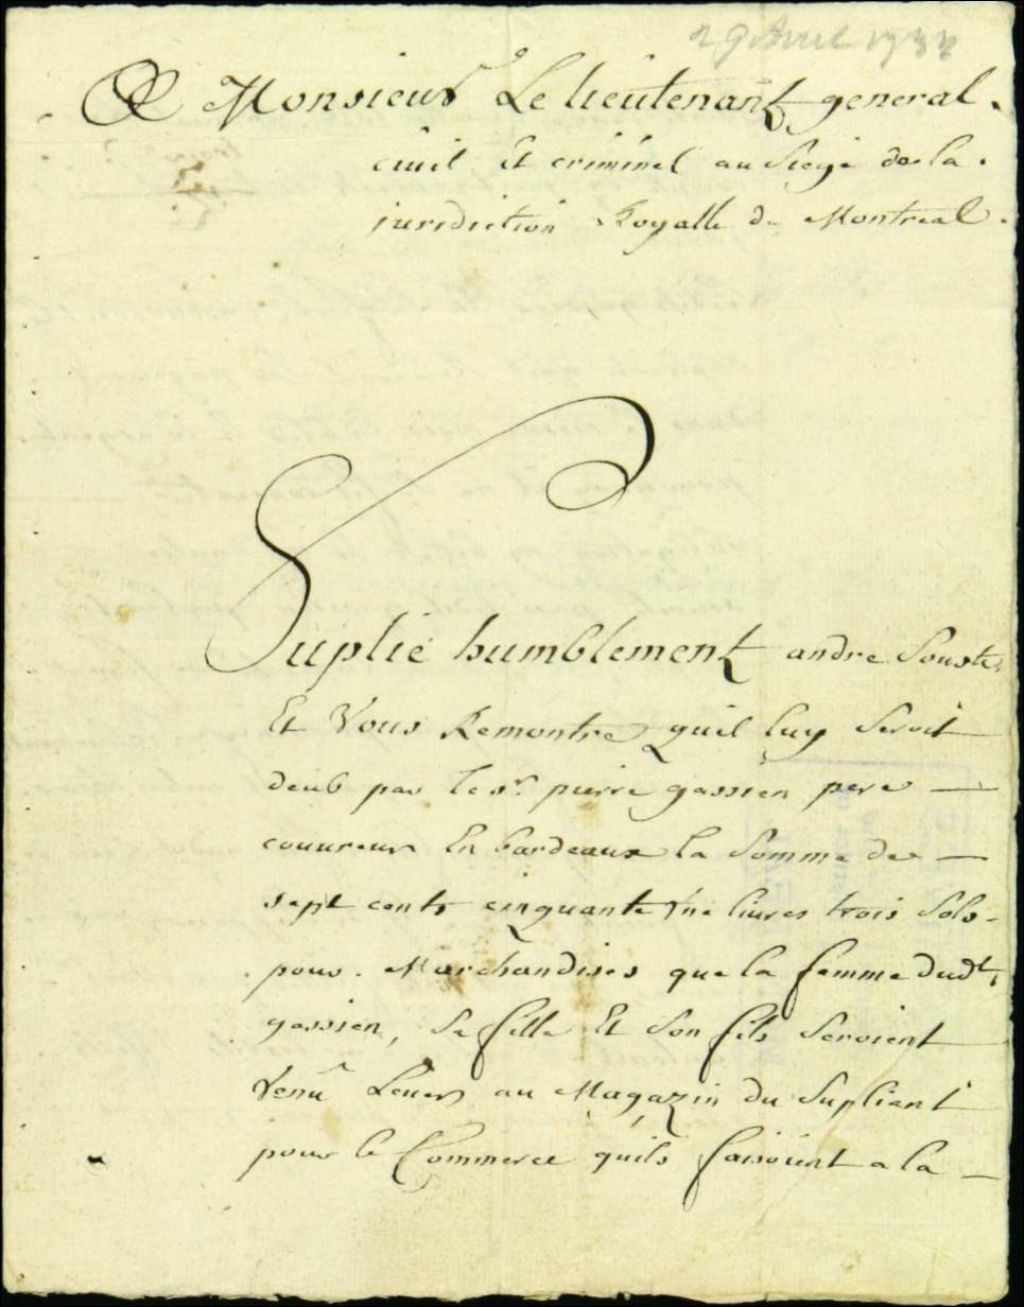 29 avril 1734
A Monsieur Le lieutenant general
ciuil Et criminel au Siege de la
juridiction Royalle de Montreal.
Suplie humblement andre Souste
Et Vous Remontre quil luy Seroit
deub par le sr. pierre gassien pere
couureur En bardeaux la Somme de
sept cents cinquante une liures trois Sols
pour Marchandises que la femme dudt.
gassien, Sa fille Et Son fils Seroient
Venu Leuer au Magazin du Supliant
pour le Commerce quils faisoient a la